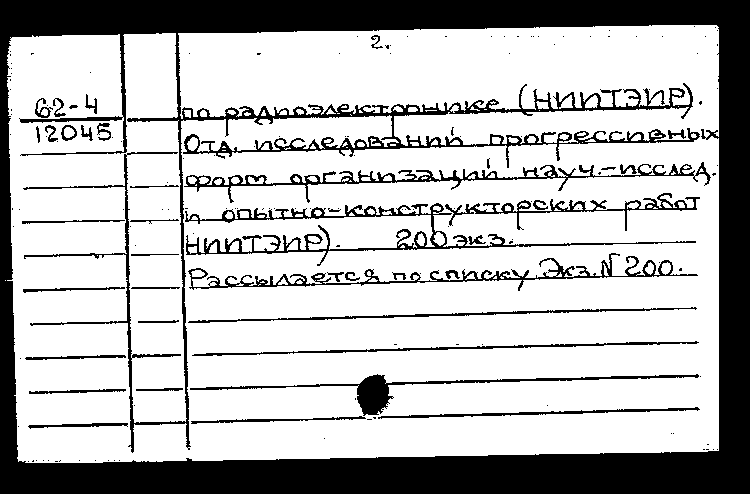 2.
62-4
12045
по радиоэлектронике (НИИТЭИР).
Отд. исследований прогрессивных
форм организаций науч.-исслед.
и опытно-конструкторских работ
НИИТЭИР). 200 экз.
Рассылается по списку Экз. N 200.